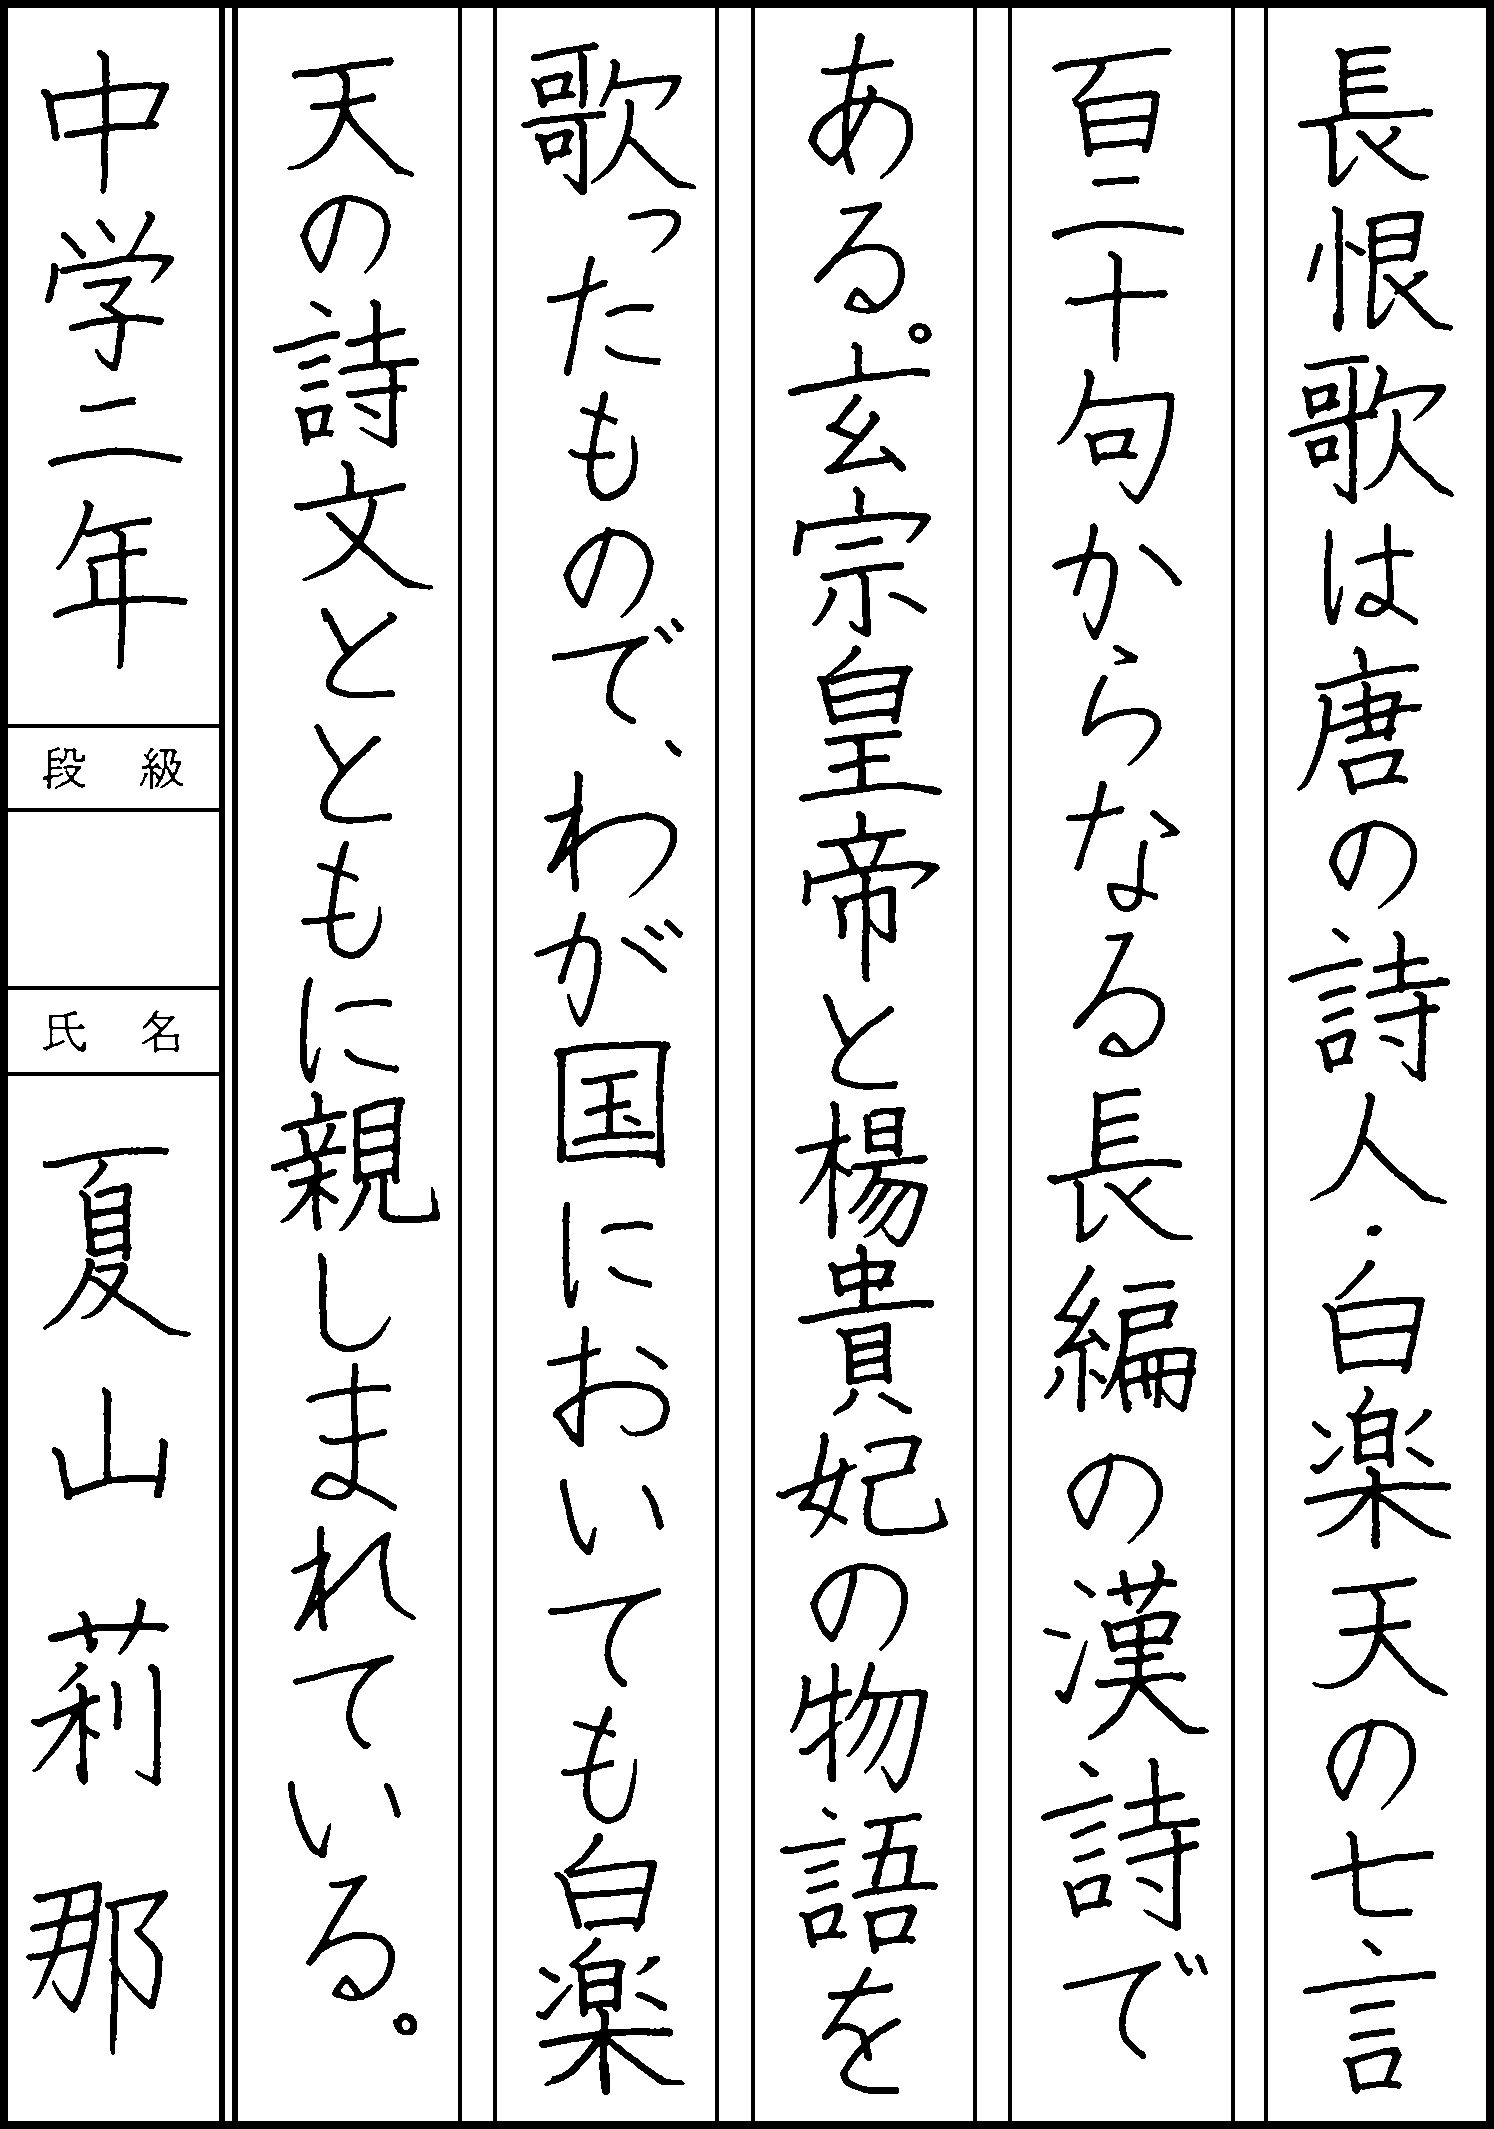 長恨歌は唐の詩人・白楽天の七言
百二十句からなる長編の漢詩で
ある。玄宗皇帝と楊貴妃の物語を
歌ったもので、わが国においても白楽
天の詩文とともに親しまれている。
中学二年
段級
氏名
夏山莉那